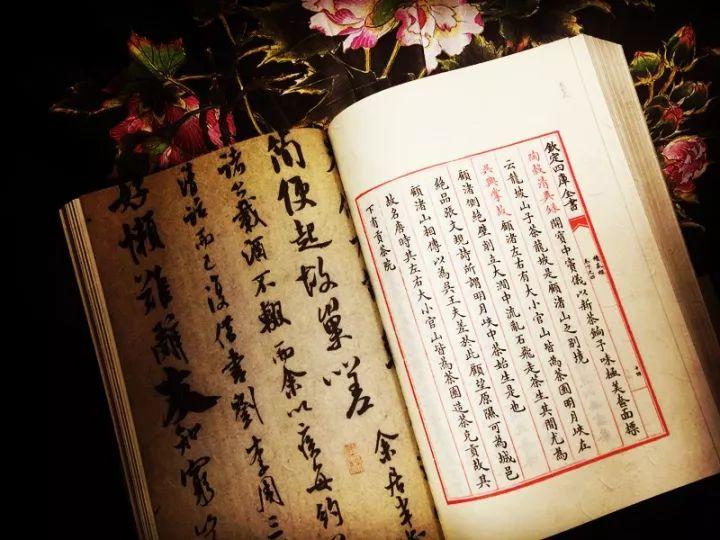 欽定四庫全書
陶穀清異錄 開寶中竇儀以新茶餉予味極美奩面標
云龍坡山子茶龍坡是顧渚山之別境
吳興掌故 顧渚左右有大小官山皆為茶園明月峽在
顧渚側絕壁削立大澗中流亂石飛走茶生其間尤為
絕品張文規詩所謂明月峽中茶始生是也
顧渚山相傳以為吳王夫差於此顧望原隰可為城邑
故名唐時其左右大小官山皆為茶園造茶充貢故其
下有貢茶院
余居半
簡便起故巢以差
諸公載酒不輟而余以疾每約
清話而已復借書劉李周三
好懶難辭友知窮